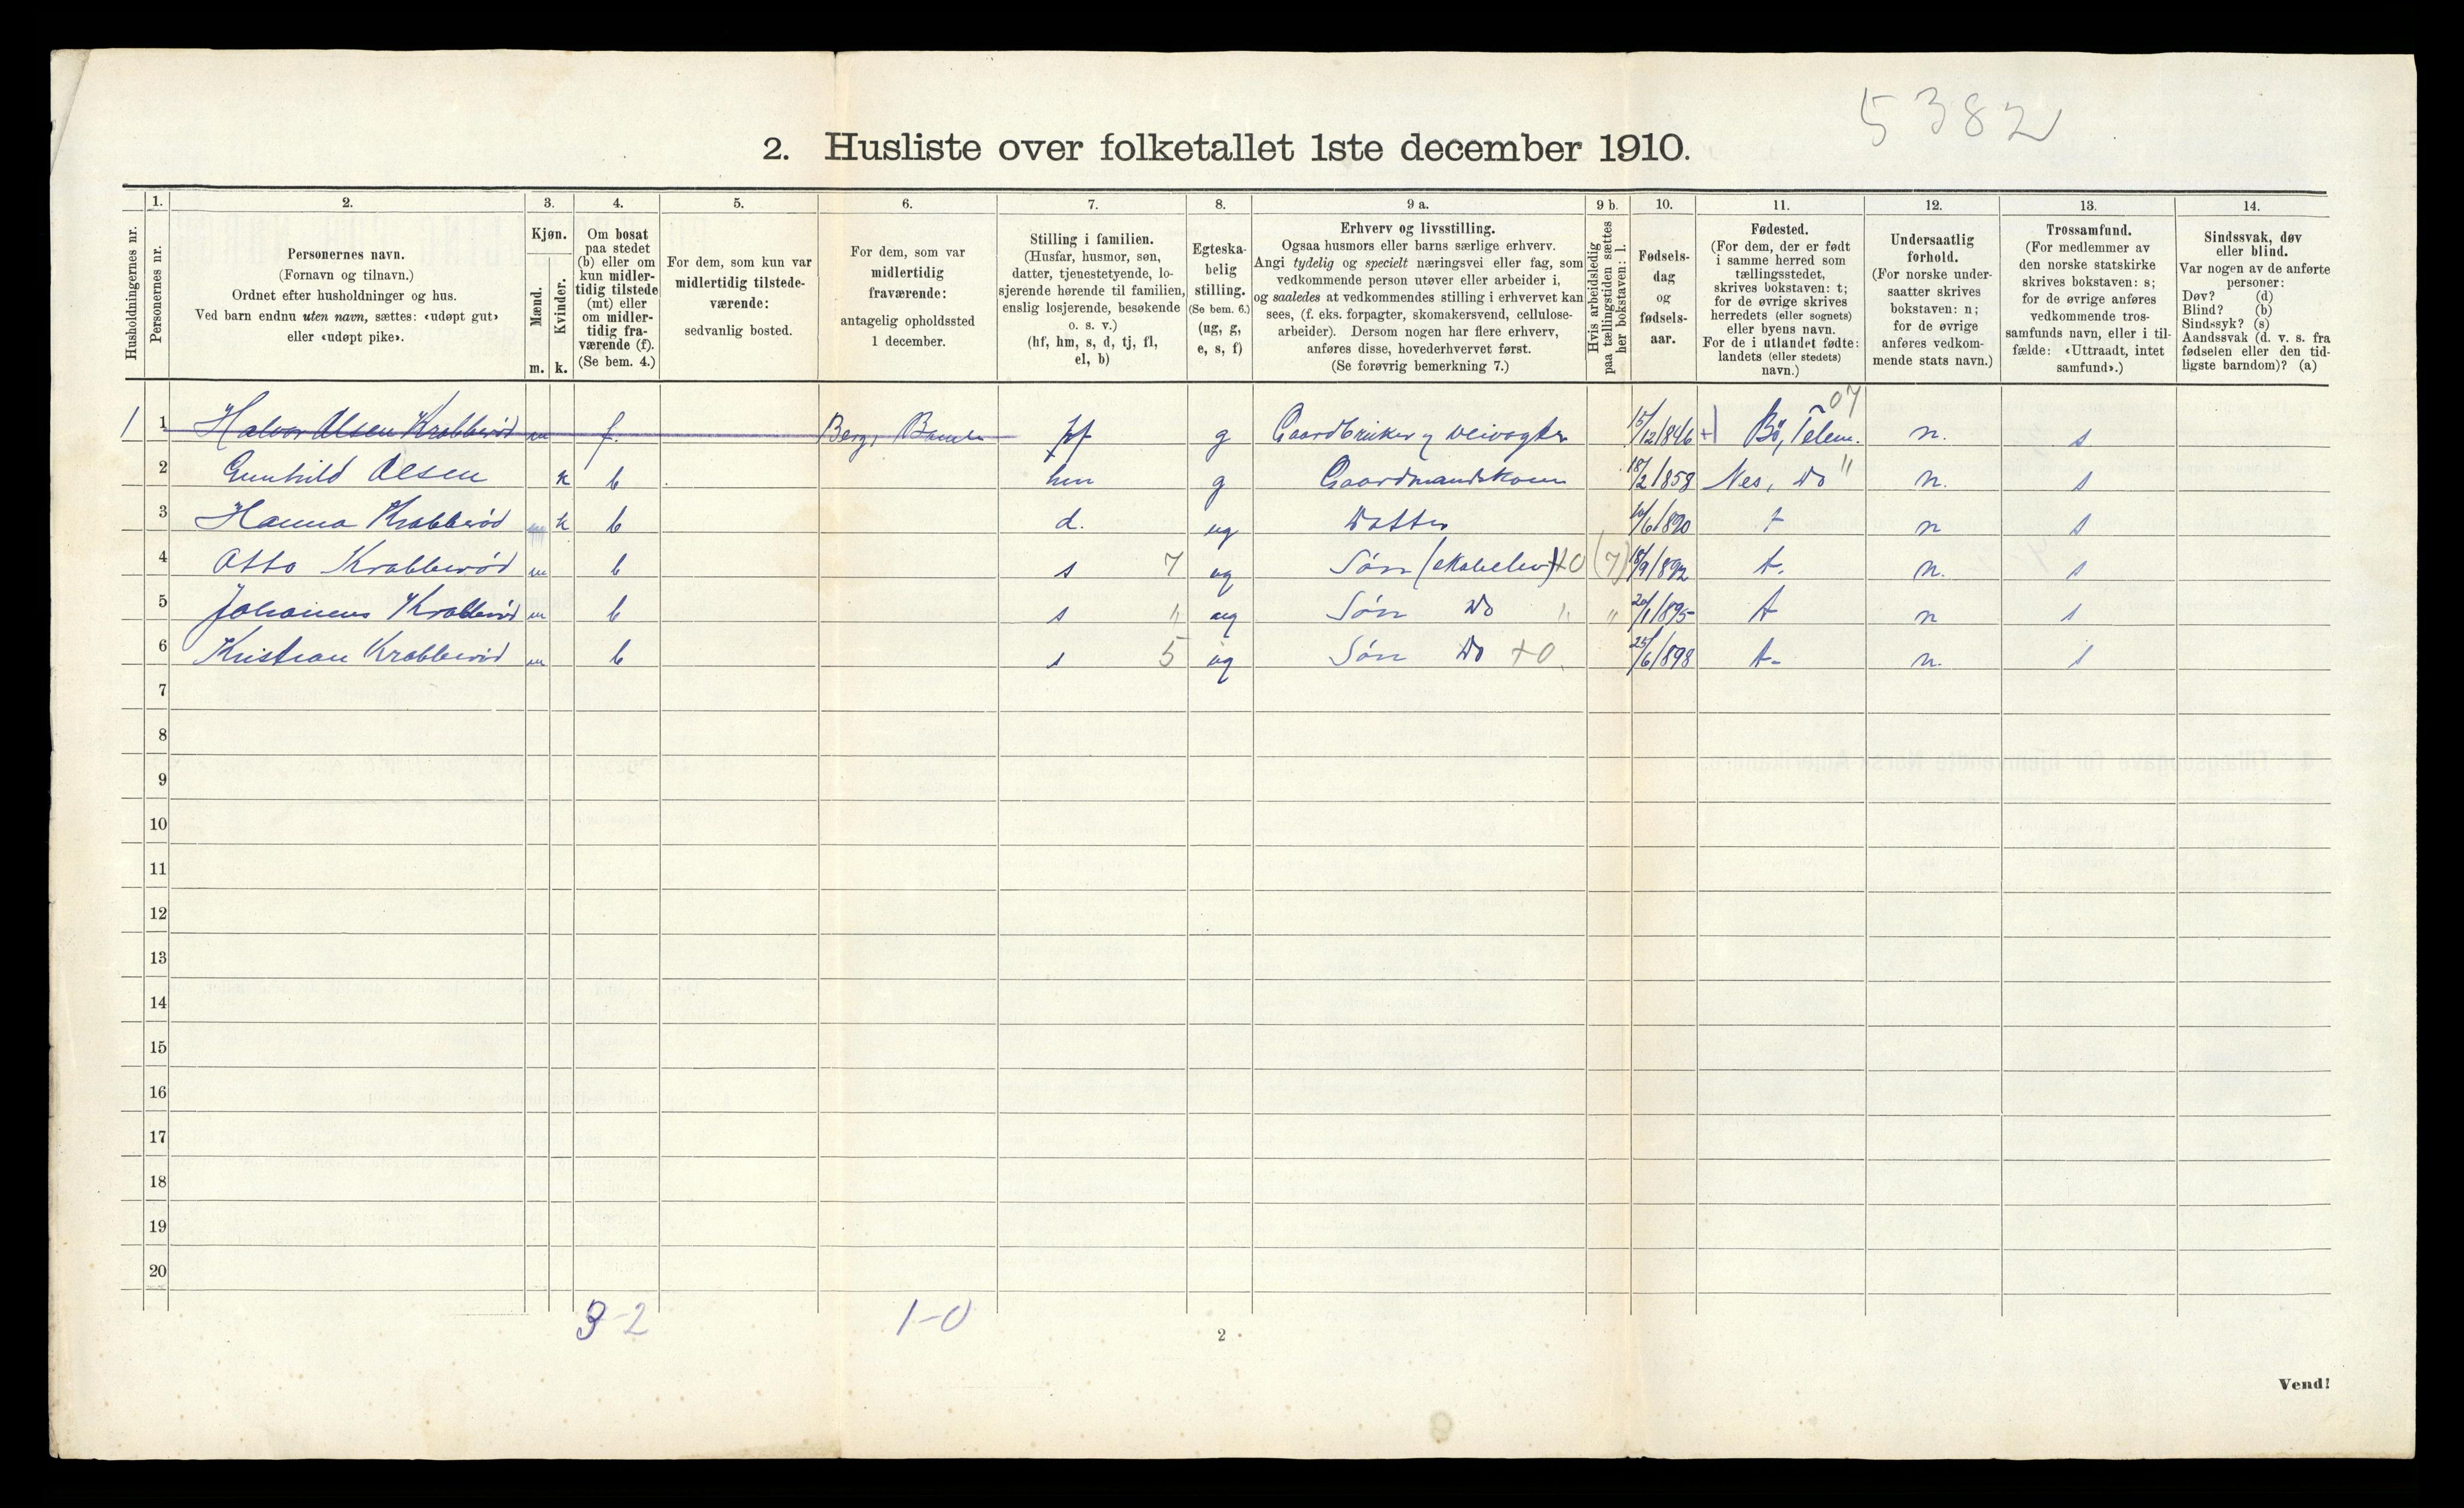 5382
2. Husliste over folketallet 1ste december 1910.
Husholdningernes nr.
1.
Personernes nr.
2.
Personernes navn.
(Fornavn og tilnavn.)
Ordnet efter husholdninger og hus.
Ved barn endnu uten navn, sættes: «udøpt gut»
eller «udøpt pike».
3.
Kjøn.
Mænd.
m.
Kvinder.
k.
4.
Om bosat
paa stedet
(b) eller om
kun midler-
tidig tilstede
(mt) eller
om midler-
tidig fra-
værende (f).
(Se bem. 4.)
5.
For dem, som kun var
midlertidig tilstede-
værende:
sedvanlig bosted.
6.
For dem, som var
midlertidig
fraværende:
antagelig opholdssted
1 december.
7.
Stilling i familien.
(Husfar, husmor, søn,
datter, tjenestetyende, lo-
sjerende hørende til familien,
enslig losjerende, besøkende
o. s. v.)
(hf, hm, s, d, tj, fl,
el, b)
8.
Egteska-
belig
stilling.
(Se bem. 6.)
(ug, g,
e, s, f)
9 a.
Erhverv og livsstilling.
Ogsaa husmors eller barns særlige erhverv.
Angi tydelig og specielt næringsvei eller fag, som
vedkommende person utøver eller arbeider i,
og saaledes at vedkommendes stilling i erhvervet kan
sees, (f. eks. forpagter, skomakersvend, cellulose-
arbeider). Dersom nogen har flere erhverv,
anføres disse, hovederhvervet først.
(Se forøvrig bemerkning 7.)
9 b.
Hvis arbeidsledig
paa tællingstiden sættes
her bokstaven: l.
10.
Fødsels-
dag
og
fødsels-
aar.
11.
Fødested.
(For dem, der er født
i samme herred som
tællingsstedet,
skrives bokstaven: t;
for de øvrige skrives
herredets (eller sognets)
eller byens navn.
For de i utlandet fødte:
landets (eller stedets)
navn.)
12.
Undersaatlig
forhold.
(For norske under-
saatter skrives
bokstaven: n;
for de øvrige
anføres vedkom-
mende stats navn.)
13.
Trossamfund.
(For medlemmer av
den norske statskirke
skrives bokstaven: s;
for de øvrige anføres
vedkommende tros-
samfunds navn, eller i til-
fælde: «Uttraadt, intet
samfund».)
14.
Sindssvak, døv
eller blind.
Var nogen av de anførte
personer:
Døv? (d)
Blind? (b)
Sindssyk? (s)
Aandssvak (d. v. s. fra
fødselen eller den tid-
ligste barndom)? (a)
07
1 1 Halvor Olsen Krabberød m f. Berg, Bamle hf g Gaardbruker og veivogter 15/12 1846 Bø, Telem. n. s
2 Gunhild Olsen k b hm g Gaardmandskone 18/2 1858 Nes, Do " n. s
3 Hanna Krabberød k b d. ug Datter 6/1890 t n s
4 Otto Krabberød m b s 7 ug Søn (skoleelev) +0 (7) 18/9 1892 t. n. s
5 Johannes Krabberød m b s " ug Søn Do " " 20/1 1895 t n s
6 Kristian Krabberød m b s 5 ug Søn Do +0. 25/6 1898 t- n. s
7
8
9
10
11
12
13
14
15
16
17
18
19
20
3-2 1-0
2
Vend!